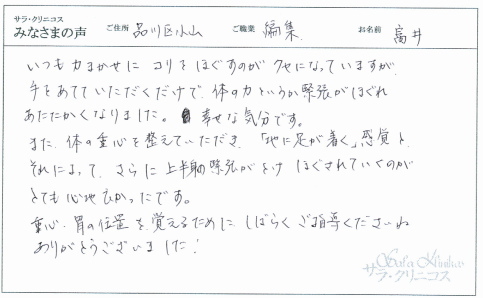 サラ・クリニコス
みなさまの声 ご住所 品川区小山 ご職業 編集 お名前 富井
いつも力まかせに コリをほぐすのがクセになっていますが、
手をあてていただくだけで、体の力というか緊張がほぐれ
あたたかくなりました。 幸せな気分です。
また、体の重心を整えていただき、「地に足が着く」感覚と、
それによって、さらに上半身の緊張がとけ ほぐされていくのが
とても心地よかったです。
重心・胃の位置を覚えるために しばらくご指導くださいね
ありがとうございました!
Sara Klinikos
サラ・クリニコス